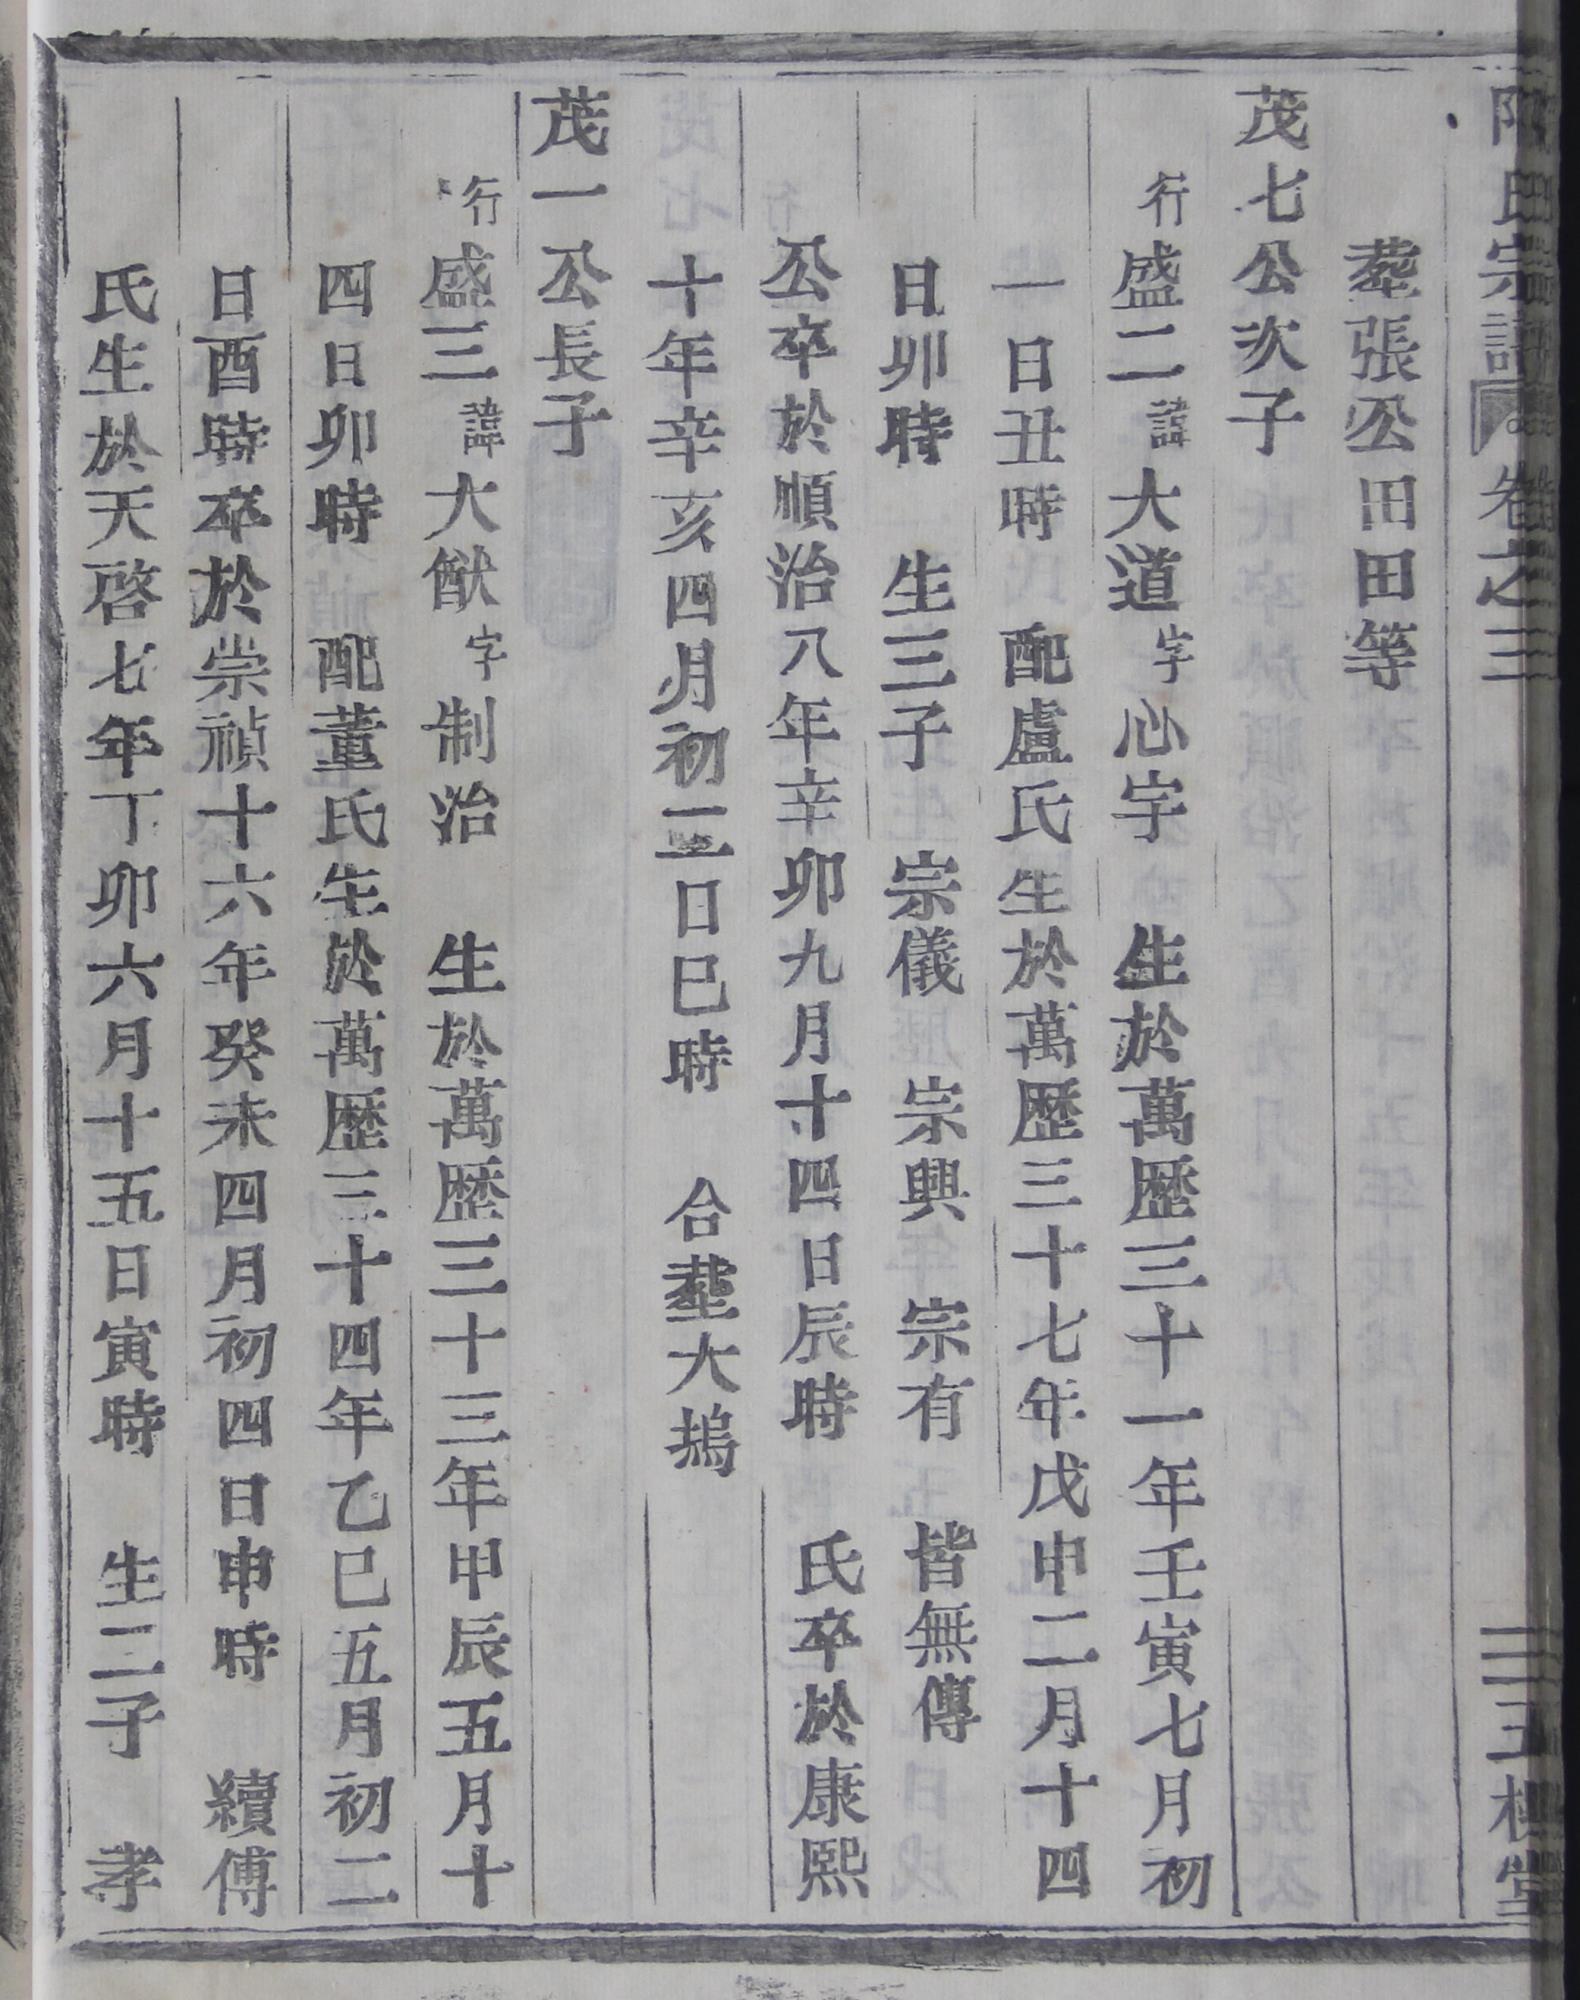 氏宗譜 卷之三 三五 槐堂
塟張公田田等
茂七公次子
行盛二諱大道字心宇 生於萬歷三十一年壬寅七月初
一日丑時 配盧氏生於萬歷三十七年戊申二月十四
日卯時 生三子 宗儀 宗興 宗有 皆無傳
公卒於順治八年辛卯九月十四日辰時 氏卒於康熙
十年辛亥四月初三日巳時 合塟大塢
茂一公長子
行盛三諱大猷字制治 生於萬歷三十三年甲辰五月十
四日卯時 配董氏生於萬歷三十四年乙巳五月初二
日酉時卒於崇禎十六年癸未四月初四日申時 續傅
氏生於天啓七年丁卯六月十五日寅時 生二子 孝